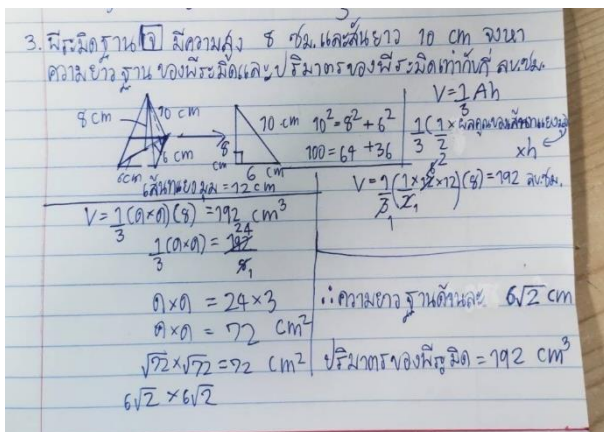 3. พีระมิดฐาน จ มีความสูง 8 ซม. และสันยาว 10 cm จงหา
ความยาวฐานของพีระมิดและปริมาตรของพีระมิดเท่ากับกี่ ลบ.ซม.
8 cm 10 cm
6 cm 6 cm
เส้นทแยงมุม = 12 cm
10 cm
8 cm
6 cm
10² = 8² + 6²
100 = 64 + 36
V = 1/3 Ah
1/3 (1/2 × ผลคูณของเส้นทแยงมุม)
×h
V = 1/3 (1/2 × 12 × 12)(8) = 192 ลบ.ซม.
V = 1/3 (ด×ด)(8) = 192 cm³
1/3 (ด×ด) = 192/8 24 1
ด×ด = 24×3
ด×ด = 72 cm²
√72 × √72 = 72 cm²
6√2 × 6√2
∴ ความยาวฐานด้านละ 6√2 cm
ปริมาตรของพีระมิด = 192 cm³